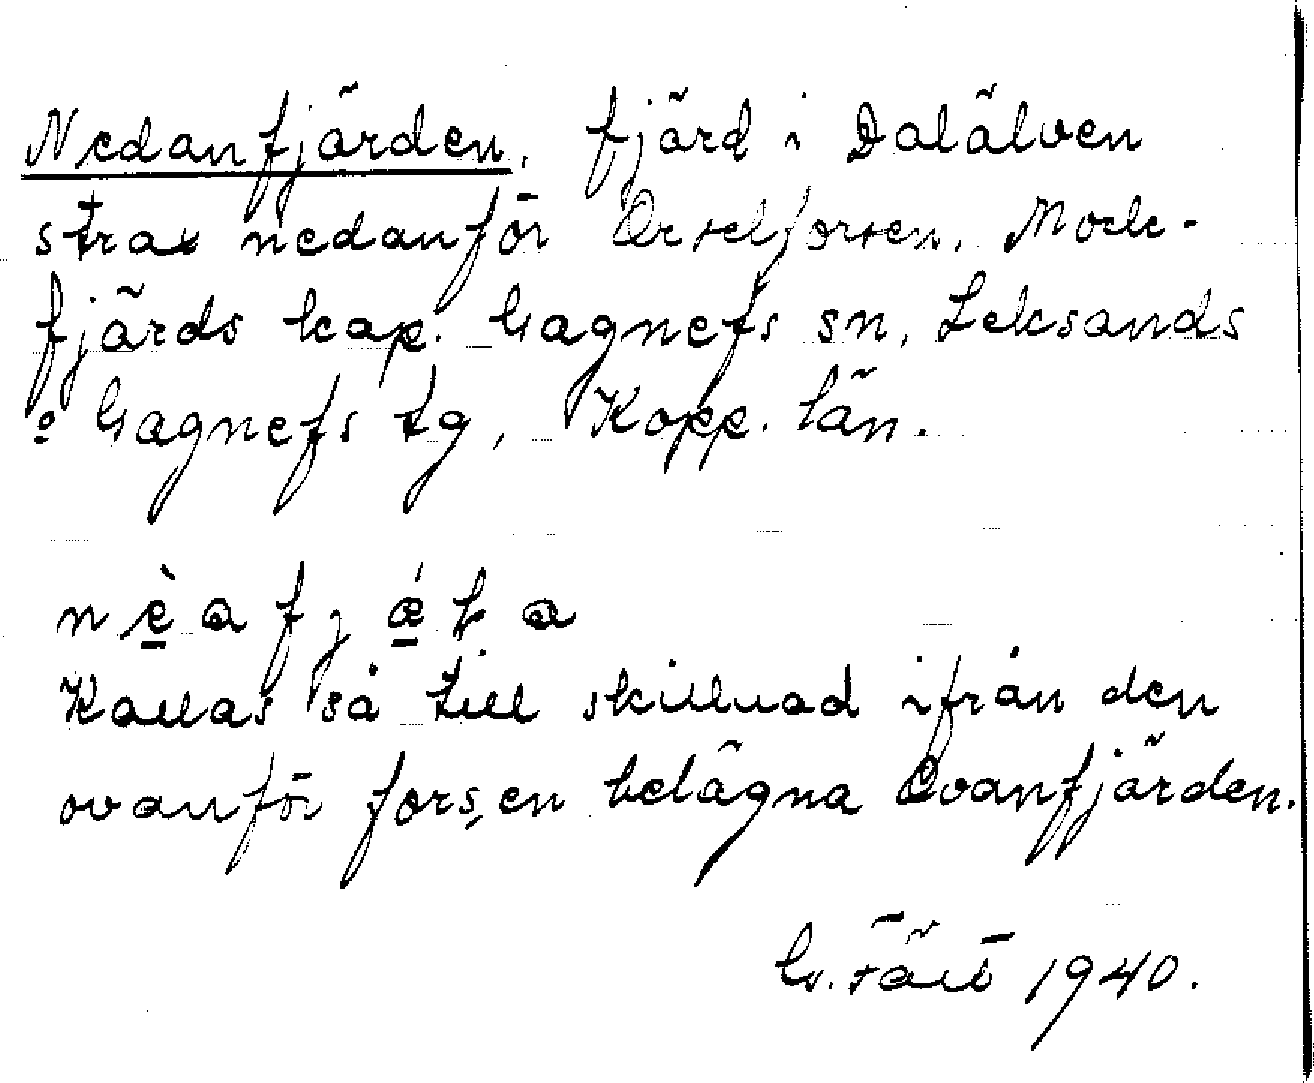 Nedanfjärden, fjärd i Dalälven
strax nedanför Orselforsen, Mock-
fjärds kap. Gagnefs sn, Leksands
o Gagnefs tg, Kopp. län.
Kallas så till skillnad ifrån den
ovanför forsen belägna Ovanfjärden.
G. Täll 1940.